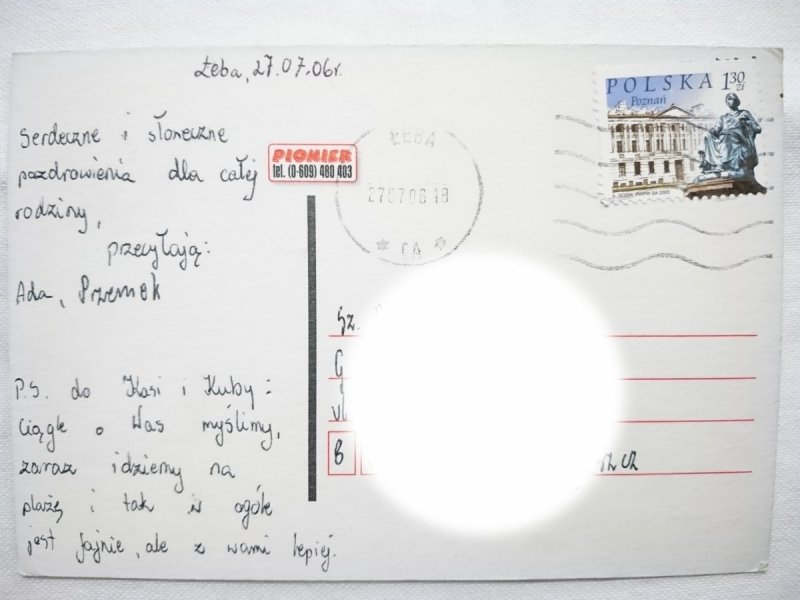 Łeba, 27.07.06r.
Serdeczne i słoneczne
pozdrowienia dla całej
rodziny,
przecyłają:
Ada, Przemek
P.S. do Kasi i Kuby:
ciągle o Was myślimy,
zaraz idziemy na
plażę i tak w ogóle
jest fajnie, ale z wami lepiej.
PIONIER
tel. (0-609) 480 403
ŁEBA
270706 18
* CA *
POLSKA 1 30 zł
Poznań
Sz.
B